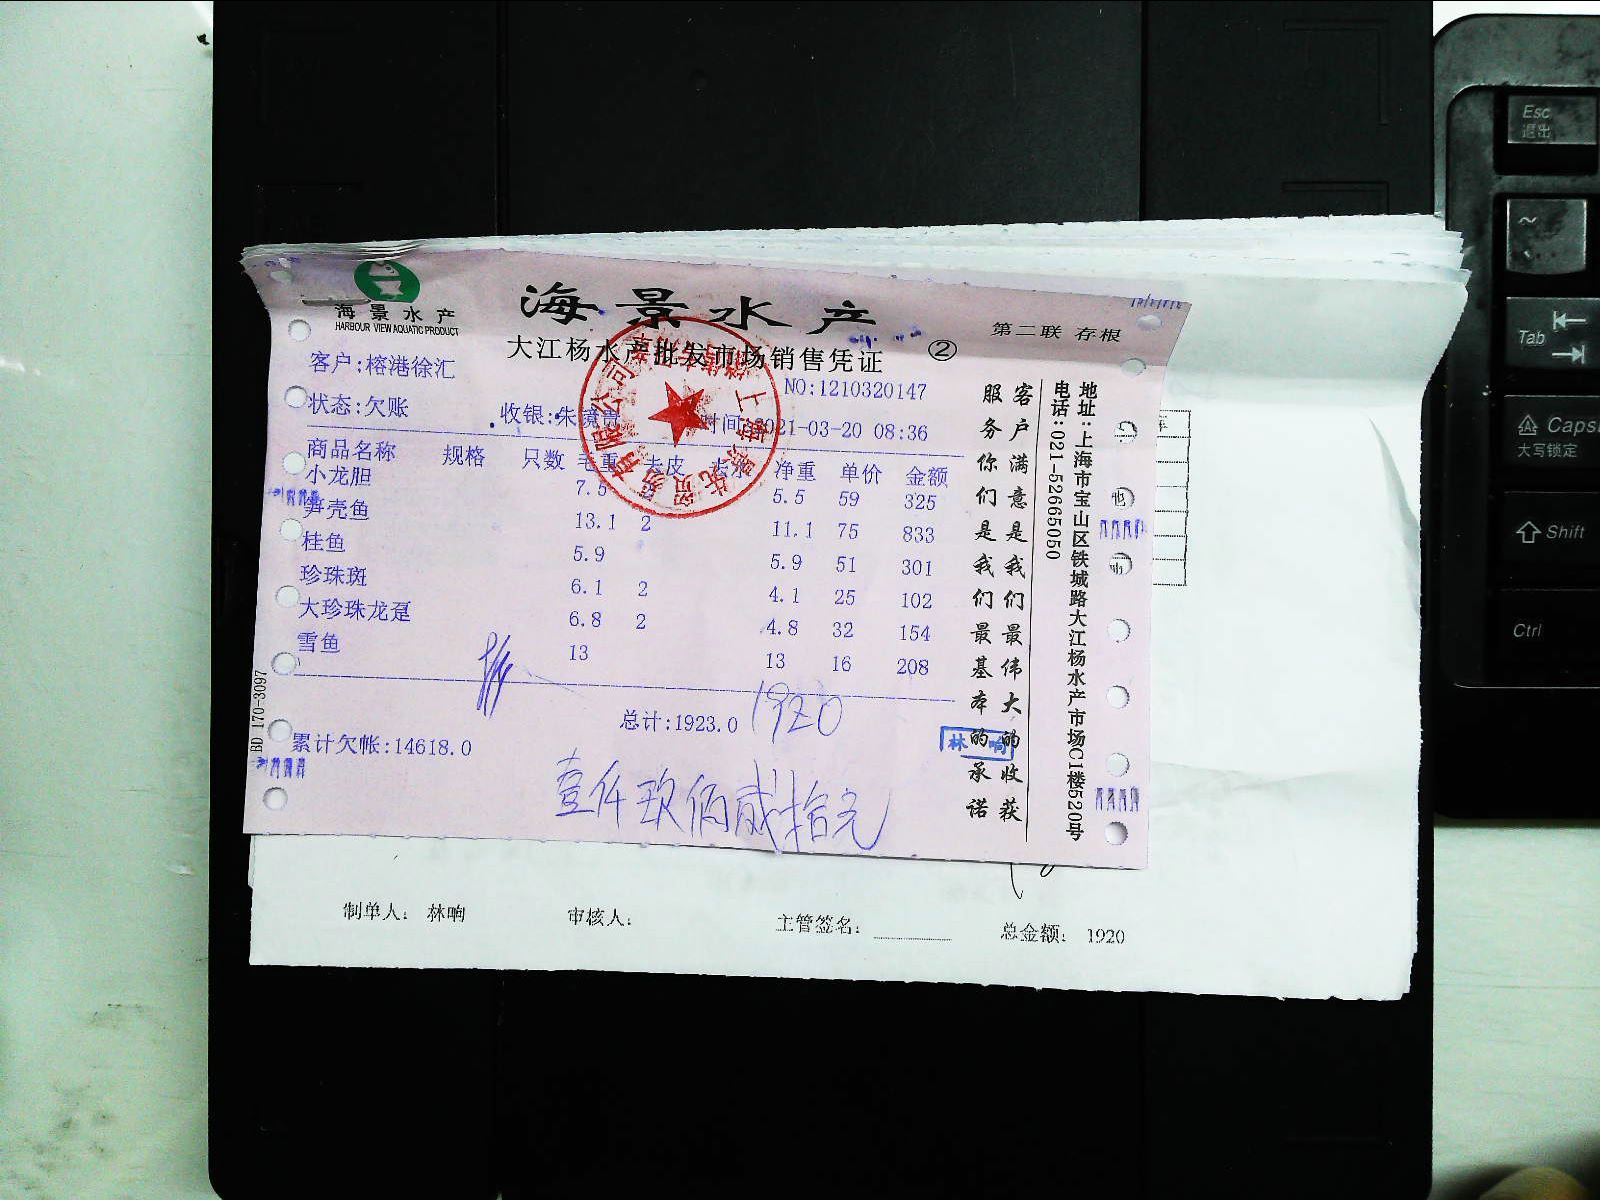 海景水产
HARBOUR VIEW AQUATIC PRODUCT
海景水产
大江杨水产批发市场销售凭证
②
第二联 存根
客户:榕港徐汇
NO:1210320147
状态:欠账 收银:朱 时间 2021-03-20 08:36
商品名称 规格 只数 毛重 去皮 去水 净重 单价 金额
小龙胆 7.5 5.5 59 325
笋壳鱼 13.1 2 11.1 75 833
桂鱼 5.9 5.9 51 301
珍珠斑 6.1 2 4.1 25 102
大珍珠龙趸 6.8 2 4.8 32 154
雪鱼 13 13 16 208
总计:1923.0 1920
累计欠帐:14618.0
壹仟玖佰贰拾元
BD 170-3097
客户满意是我们最伟大的收获
服务你们是我们最基本的承诺
地址:上海市宝山区铁城路大江杨水产市场C1楼520号
电话:021-52665050
林响
制单人: 林响 审核人: 主管签名: 总金额: 1920
Esc
退出
~
Tab
Caps
大写锁定
Shift
Ctrl